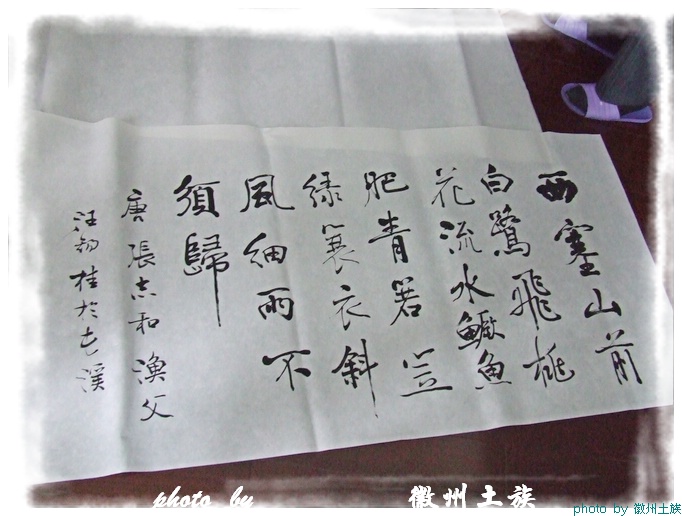 西塞山前
白鷺飛桃
花流水鱖魚
肥青箬笠
绿簑衣斜
風細雨不
須歸
唐張志和漁父
汪桂於屯溪
photo by 徽州土族
photo by 徽州土族